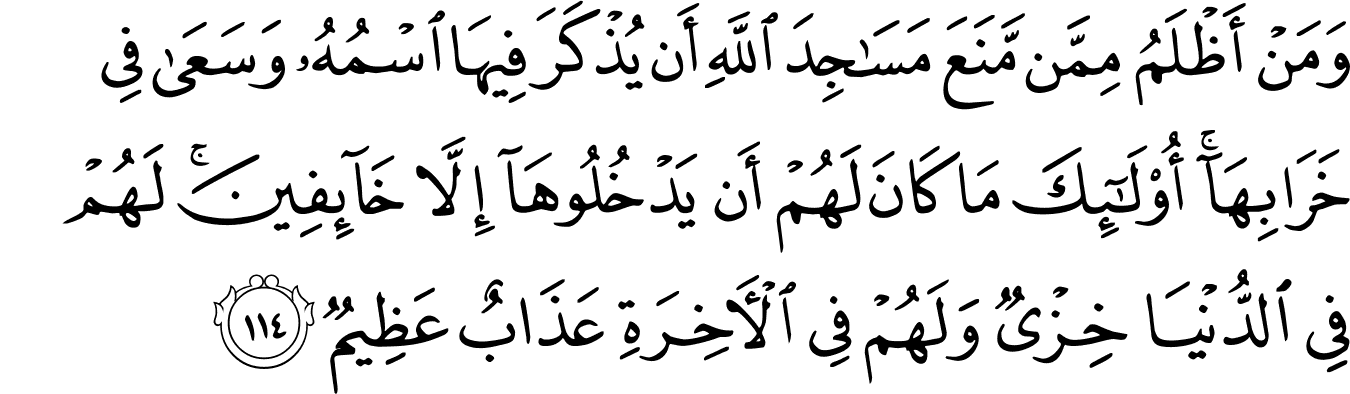 وَمَنْ أَظْلَمُ مِمَّن مَّنَعَ مَسَـٰجِدَ ٱللَّهِ أَن يُذْكَرَ فِيهَا ٱسْمُهُۥ وَسَعَىٰ فِى
خَرَابِهَآ ۚ أُو۟لَـٰٓئِكَ مَا كَانَ لَهُمْ أَن يَدْخُلُوهَآ إِلَّا خَآئِفِينَ ۚ لَهُمْ
فِى ٱلدُّنْيَا خِزْىٌ وَلَهُمْ فِى ٱلْـَٔاخِرَةِ عَذَابٌ عَظِيمٌ ١١٤